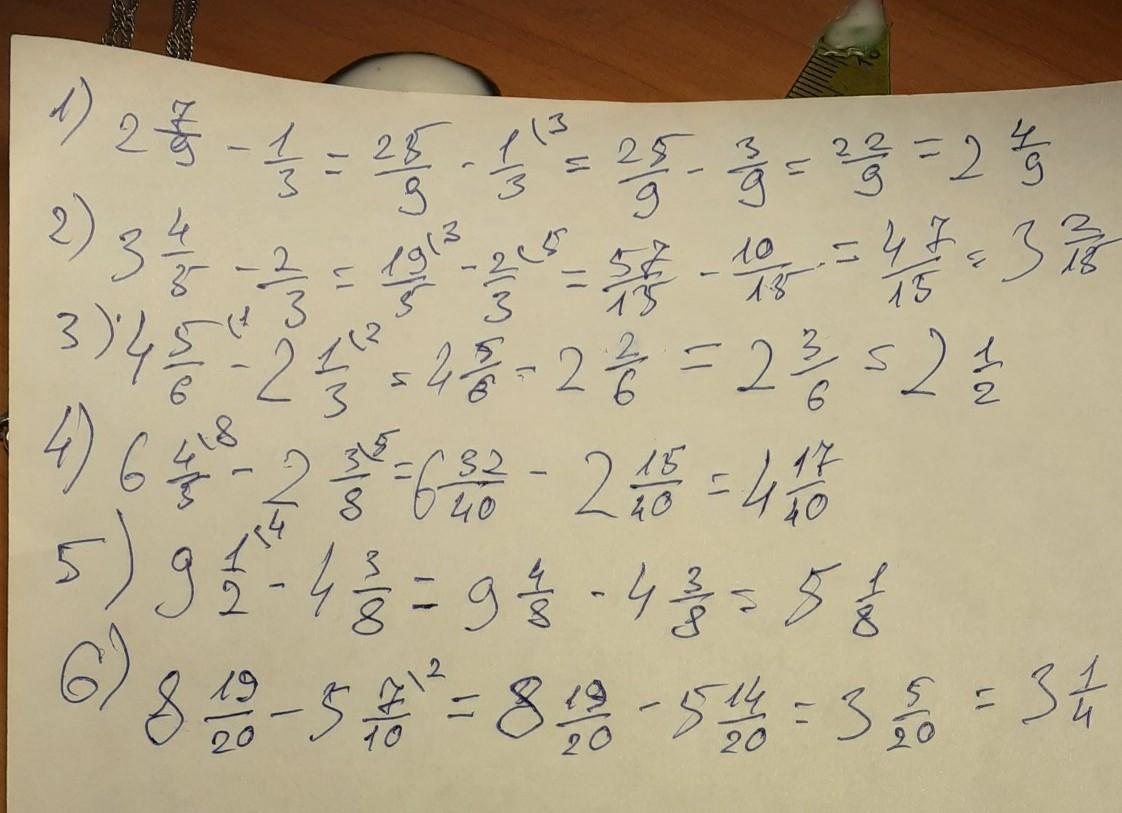 1) 2 7/9 - 1/3 = 25/9 - 1/3 \3 = 25/9 - 3/9 = 22/9 = 2 4/9
2) 3 4/5 - 2/3 = 19/5 \3 - 2/3 \5 = 57/15 - 10/15 = 47/15 = 3 2/15
3) 4 5/6 \1 - 2 1/3 \2 = 4 5/6 - 2 2/6 = 2 3/6 = 2 1/2
4) 6 4/5 \8 - 2 3/8 \5 = 6 32/40 - 2 15/40 = 4 17/40
5) 9 1/2 \4 - 4 3/8 = 9 4/8 - 4 3/8 = 5 1/8
6) 8 19/20 - 5 7/10 \2 = 8 19/20 - 5 14/20 = 3 5/20 = 3 1/4